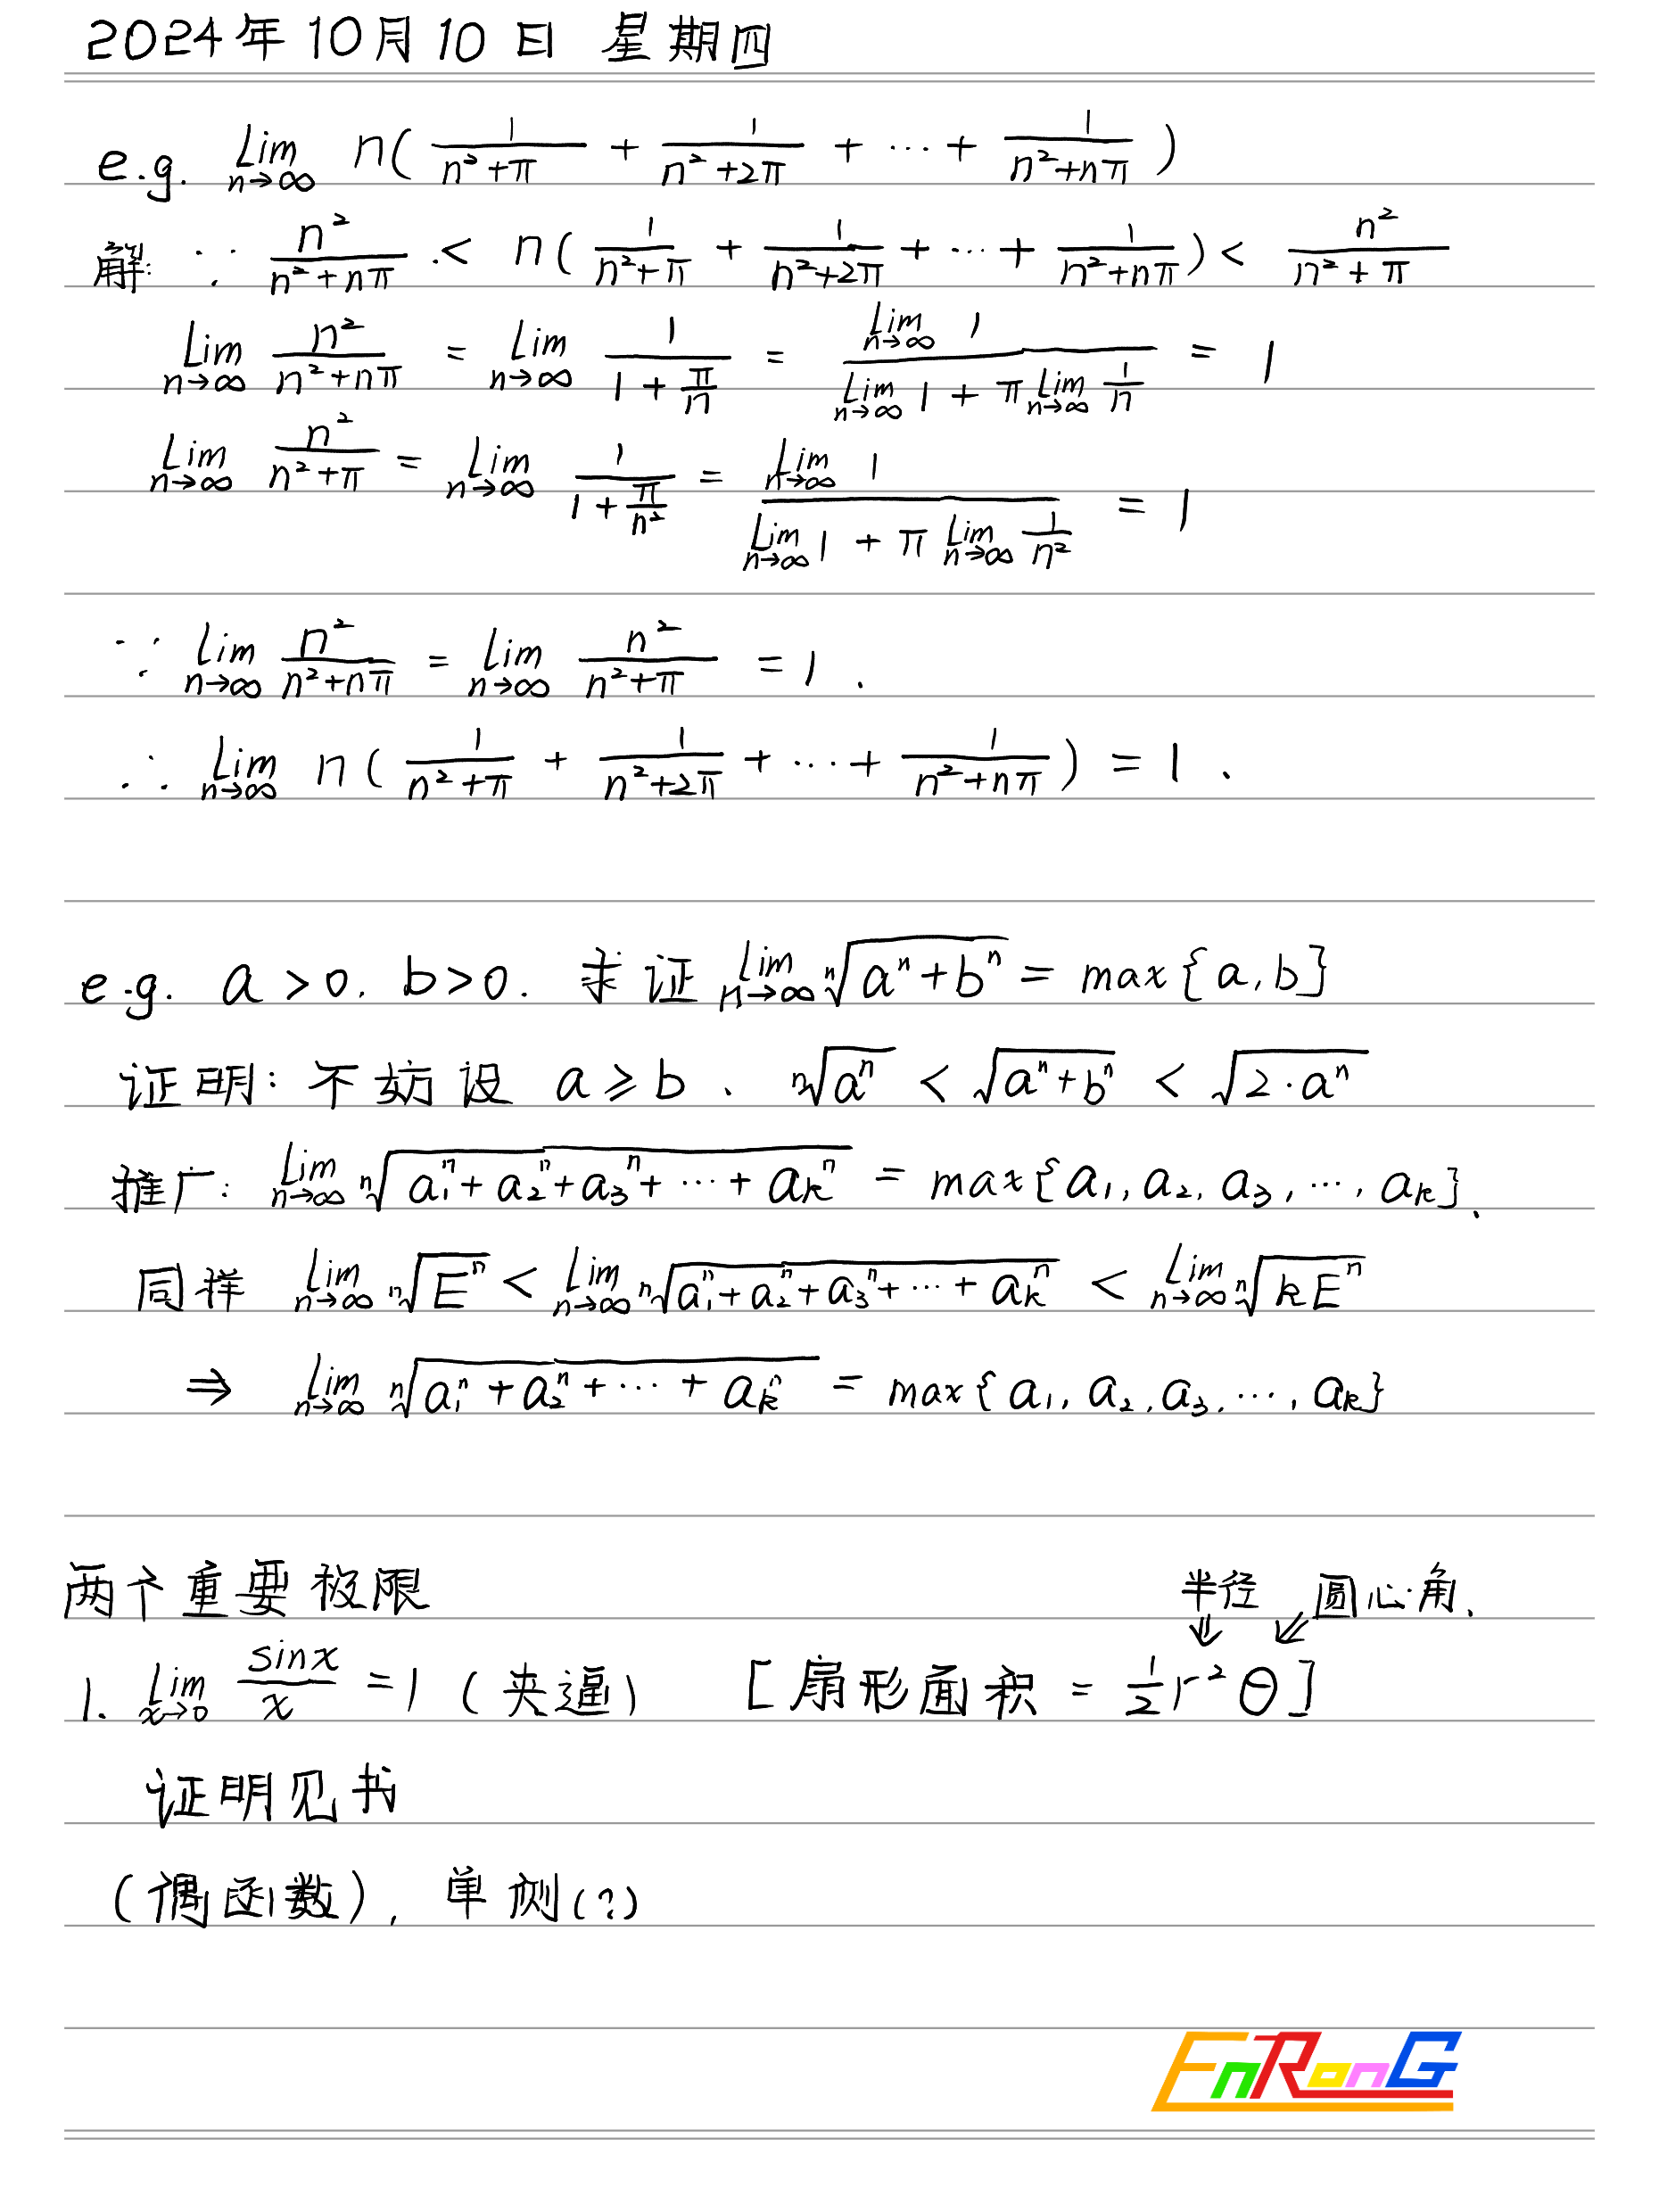 2024年10月10日 星期四
e.g. lim_{n→∞} n( 1/(n²+π) + 1/(n²+2π) + ⋯ + 1/(n²+nπ) )
解: ∵ n²/(n²+nπ) < n( 1/(n²+π) + 1/(n²+2π) + ⋯ + 1/(n²+nπ) ) < n²/(n²+π)
lim_{n→∞} n²/(n²+nπ) = lim_{n→∞} 1/(1+π/n) = (lim_{n→∞} 1)/(lim_{n→∞} 1 + π lim_{n→∞} 1/n) = 1
lim_{n→∞} n²/(n²+π) = lim_{n→∞} 1/(1+π/n²) = (lim_{n→∞} 1)/(lim_{n→∞} 1 + π lim_{n→∞} 1/n²) = 1
∵ lim_{n→∞} n²/(n²+nπ) = lim_{n→∞} n²/(n²+π) = 1.
∴ lim_{n→∞} n( 1/(n²+π) + 1/(n²+2π) + ⋯ + 1/(n²+nπ) ) = 1.
e.g. a>0, b>0. 求证 lim_{n→∞} ⁿ√(aⁿ+bⁿ) = max{a,b}
证明: 不妨设 a≥b、 ⁿ√(aⁿ) < √(aⁿ+bⁿ) < √(2·aⁿ)
推广: lim_{n→∞} ⁿ√(a₁ⁿ+a₂ⁿ+a₃ⁿ+⋯+aₖⁿ) = max{a₁,a₂,a₃,⋯,aₖ}、
同样 lim_{n→∞} ⁿ√(Eⁿ) < lim_{n→∞} ⁿ√(a₁ⁿ+a₂ⁿ+a₃ⁿ+⋯+aₖⁿ) < lim_{n→∞} ⁿ√(kEⁿ)
⇒ lim_{n→∞} ⁿ√(a₁ⁿ+a₂ⁿ+⋯+aₖⁿ) = max{a₁,a₂,a₃,⋯,aₖ}
两个重要极限
半径 圆心角、
1. lim_{x→0} sinx/x = 1 (夹逼) [扇形面积 = ½r²θ]
证明见书
(偶函数), 单侧(?)
EnRonG